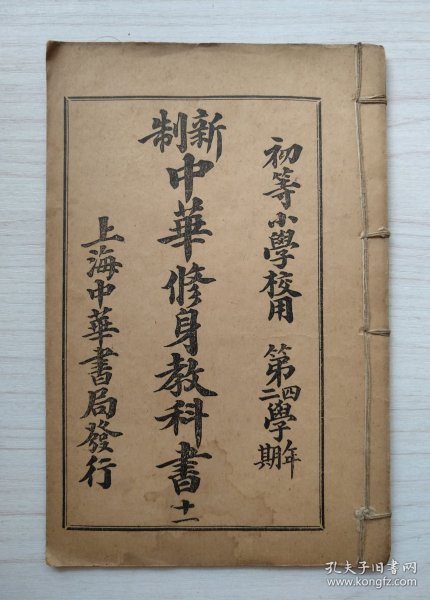 初等小學校用 第四二學年期
新制中華修身教科書 十一
上海中華書局發行
孔夫子旧书网
www.kongfz.com